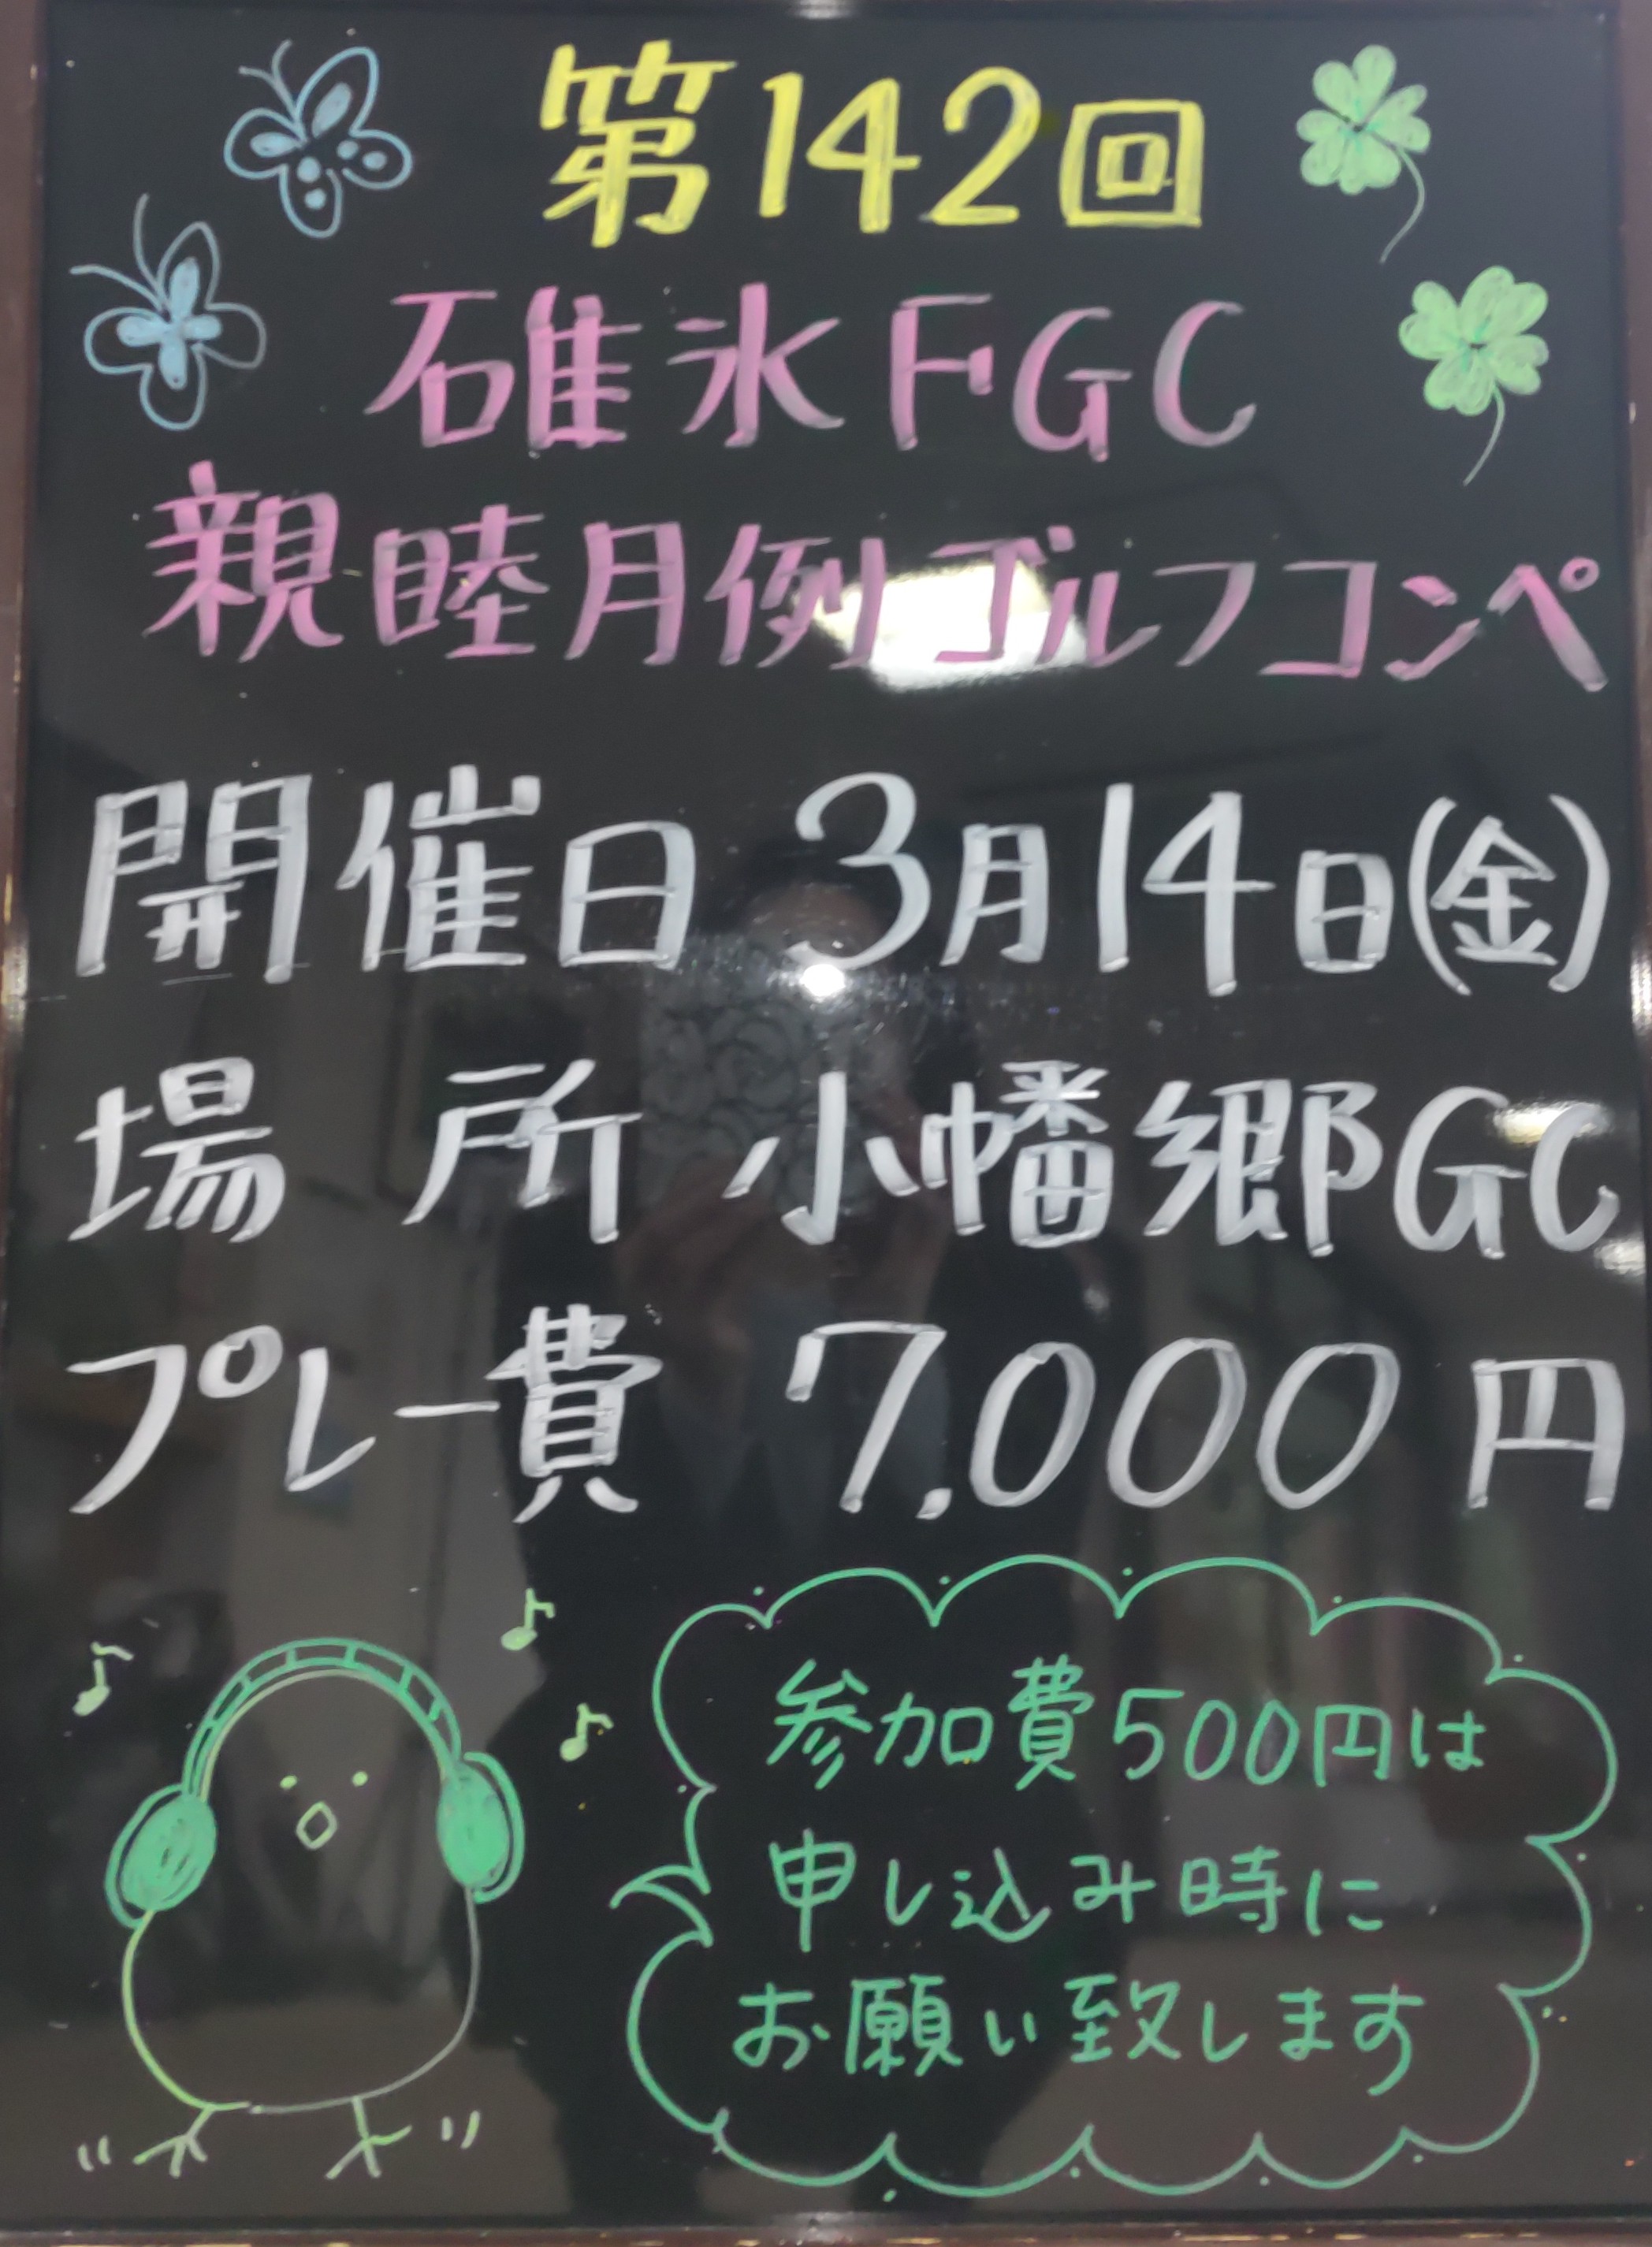 第142回
碓氷FGC
親睦月例ゴルフコンペ
開催日 3月14日(金)
場所 小幡郷GC
プレー費 7,000円
参加費500円は
申し込み時に
お願い致します